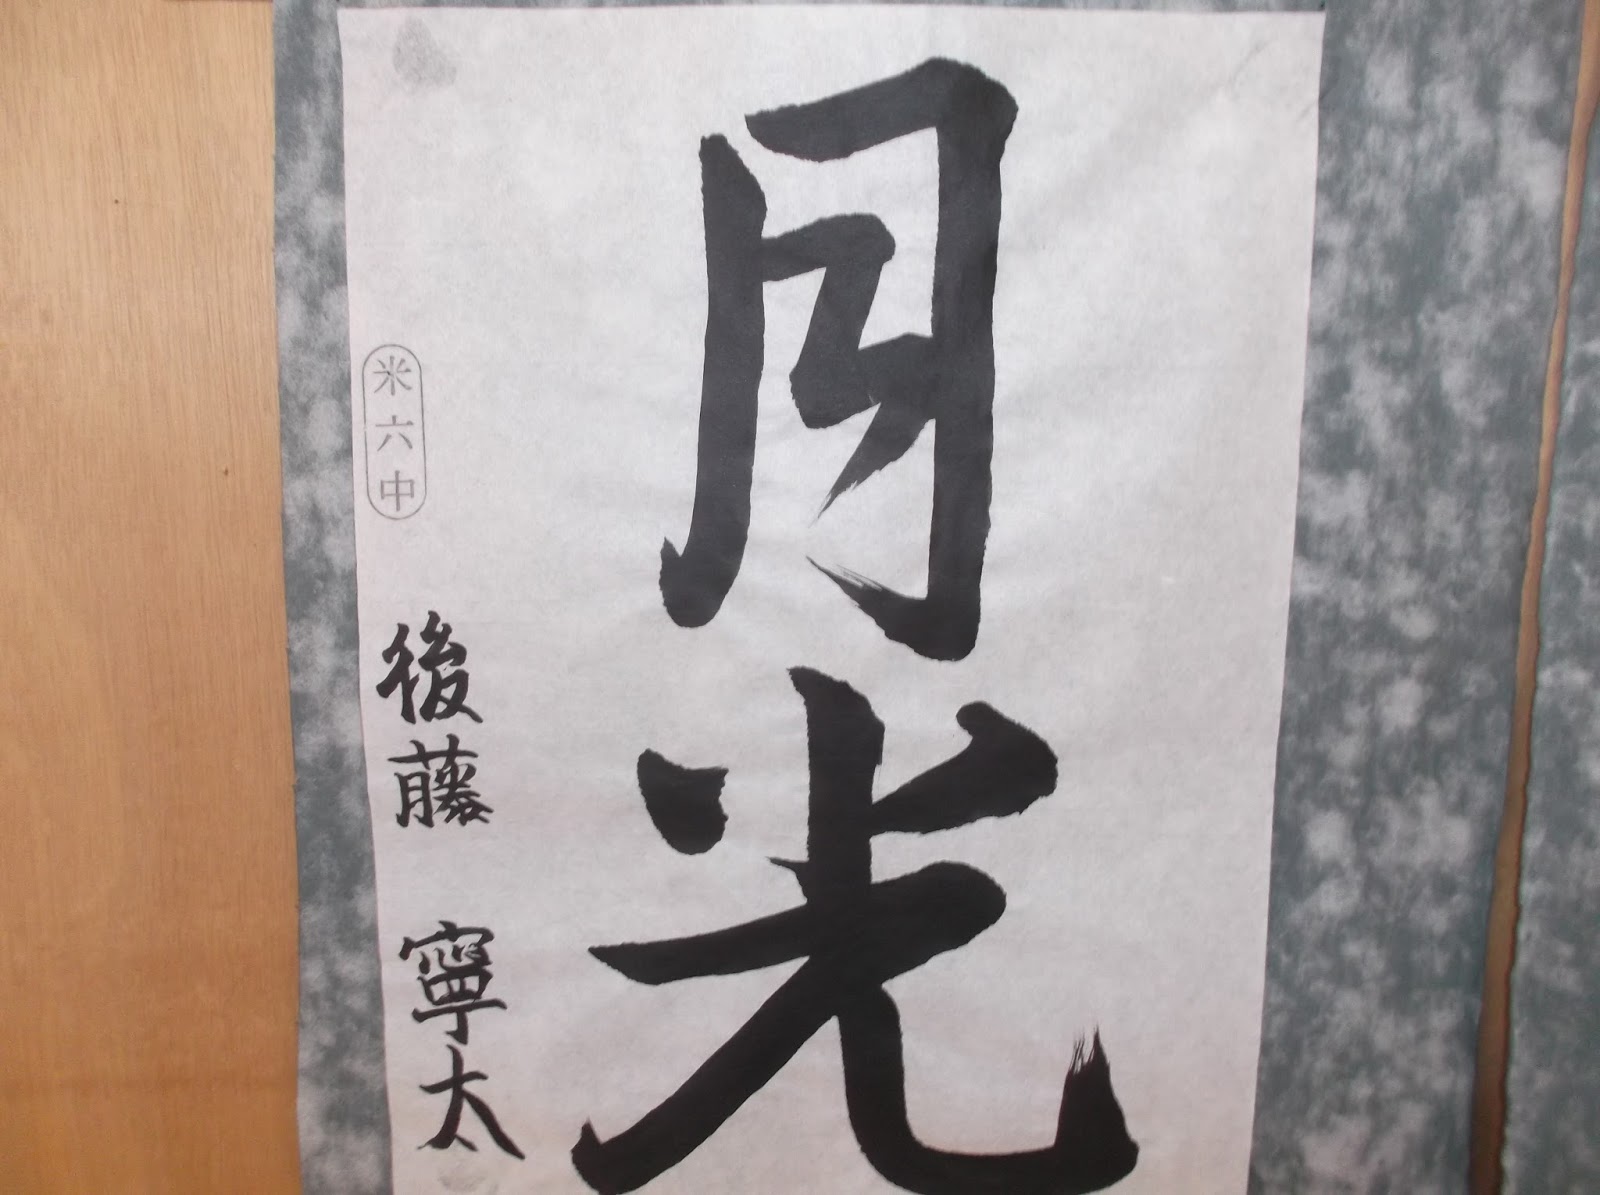 月光
米六中
後藤 寧太